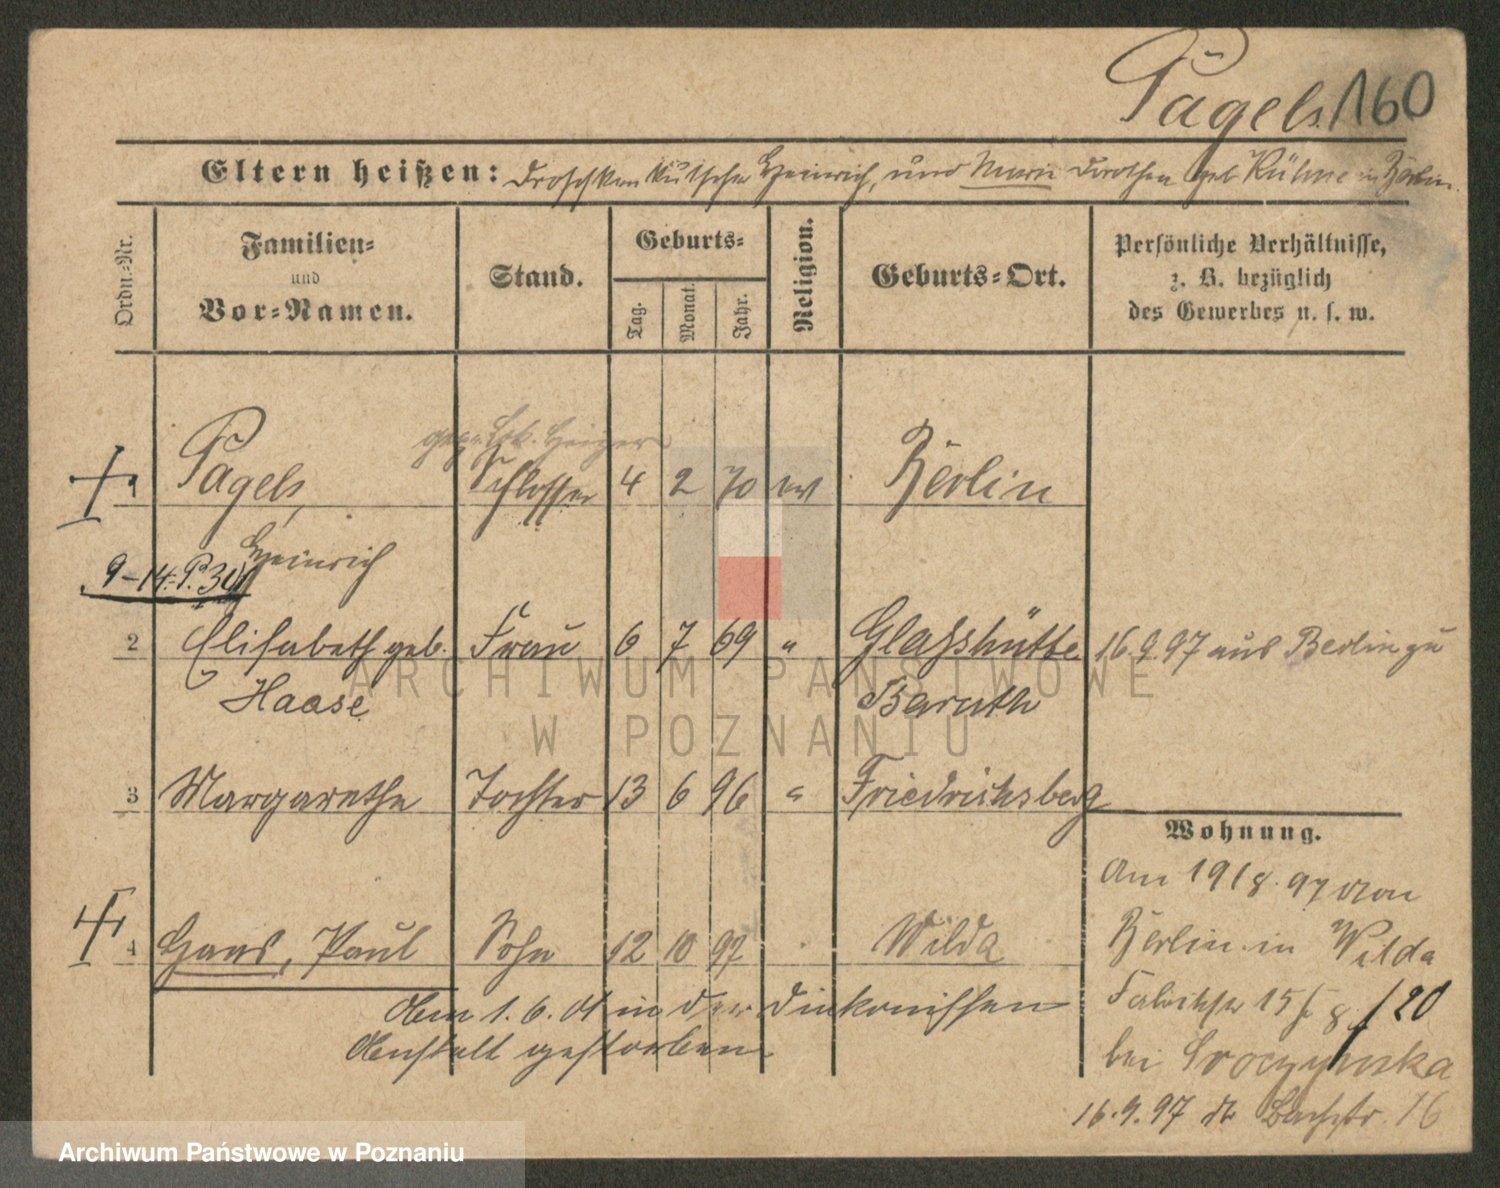 Pagels 160
Eltern heißen: Droschkenkutscher Heinrich, und Marie Dorothea geb Kühne in Berlin.
Ordn.-Nr.
Familien-
und
Vor-Namen.
Stand.
Geburts-
Tag.
Monat.
Jahr.
Religion.
Geburts-Ort.
Persönliche Verhältnisse,
z. B. bezüglich
des Gewerbes u. s. w.
Heizer
1 Pagels, Schlosser 4 2 70 ev Berlin
Heinrich
9-14. P. 30
2 Elisabeth geb. Frau 6 7 69 " Glashütte 16.9.97 aus Berlin zu
Haase Baruth
3 Margarethe Tochter 13 6 96 " Friedrichsberg
Wohnung.
Am 19/8. 97 von
4 Hans, Paul Sohn 12 10 97 Wilda
Berlin in Wilda
Am 1. 6. 01 in der Diakonissen
Fabrikstr 15 120
Anstalt gestorben.
bei
16.9.97 Bachstr. 16
ARCHIWUM PAŃSTWOWE
W POZNANIU
Archiwum Państwowe w Poznaniu